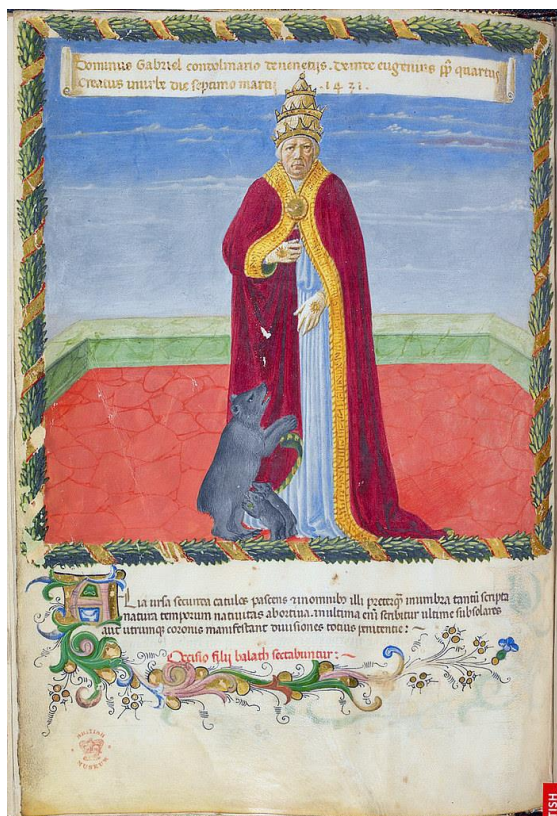 Dominus Gabriel condolmario Venonensis. Deinde eugenius pp quartus
Creatus in urbe die septimo martii .1431.
Alia ursa secunda catulos pascens in omnibo illi preterq in umbra tantū scripta
natura temporum natiuitas abortiua. in ultima em̄ scribitur ultime subsolares
aut utrumque coronis manifestant diuisiones totius penitentie :
Occisio filij balach sectabuntur : ~
BRITISH
MUSEUM
ISH